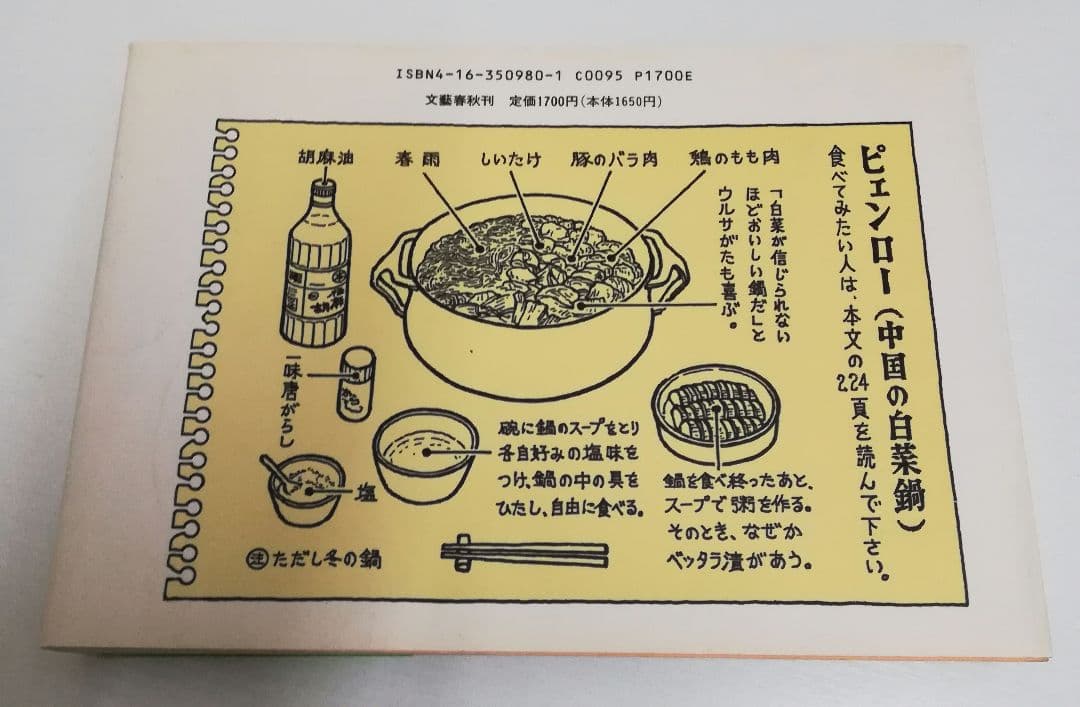 ISBN4-16-350980-1 C0095 P1700E
文藝春秋刊 定価1700円(本体1650円)
ピェンロー(中国の白菜鍋)
食べてみたい人は、本文の224頁を読んで下さい。
胡麻油
春雨
しいたけ
豚のバラ肉
鶏のもも肉
「白菜が信じられない
ほどおいしい鍋だ」と
ウルサがたも喜ぶ。
胡麻
一味唐がらし
塩
碗に鍋のスープをとり
各自好みの塩味を
つけ、鍋の中の具を
ひたし、自由に食べる。
鍋を食べ終ったあと、
スープで粥を作る。
そのとき、なぜか
ベッタラ漬があう。
注 ただし冬の鍋